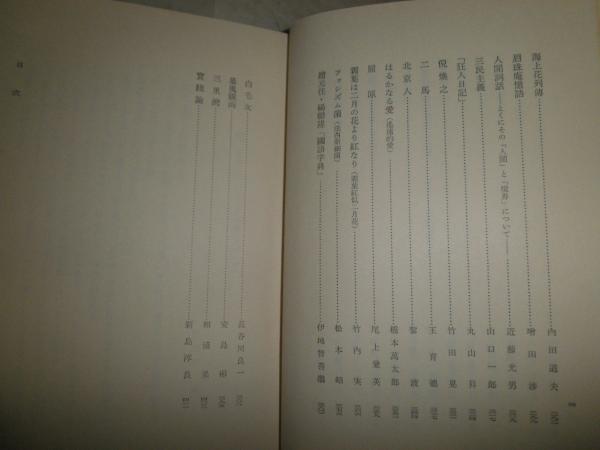 海上花列傳 内田道夫
影珠庵憶語 増田渉
人間詞話――とくにその「人間」と「境界」について―― 近藤光男
三民主義 山口一郎
「狂人日記」 丸山昇
倪煥之 竹田晃
二馬 王育德
北京人 黎波
はるかなる愛（遙遠的愛） 橋本萬太郎
屈原 尾上兼英
霜葉は二月の花より紅なり（霜葉紅似二月花） 竹内実
ファシズム菌（法西斯細菌） 松本昭
趙元任・楊聯陞「國語字典」 伊地智善繼
白毛女 長谷川良一
暴風驟雨 安島彬
三里灣 相浦杲
實踐論 新島淳良
目次